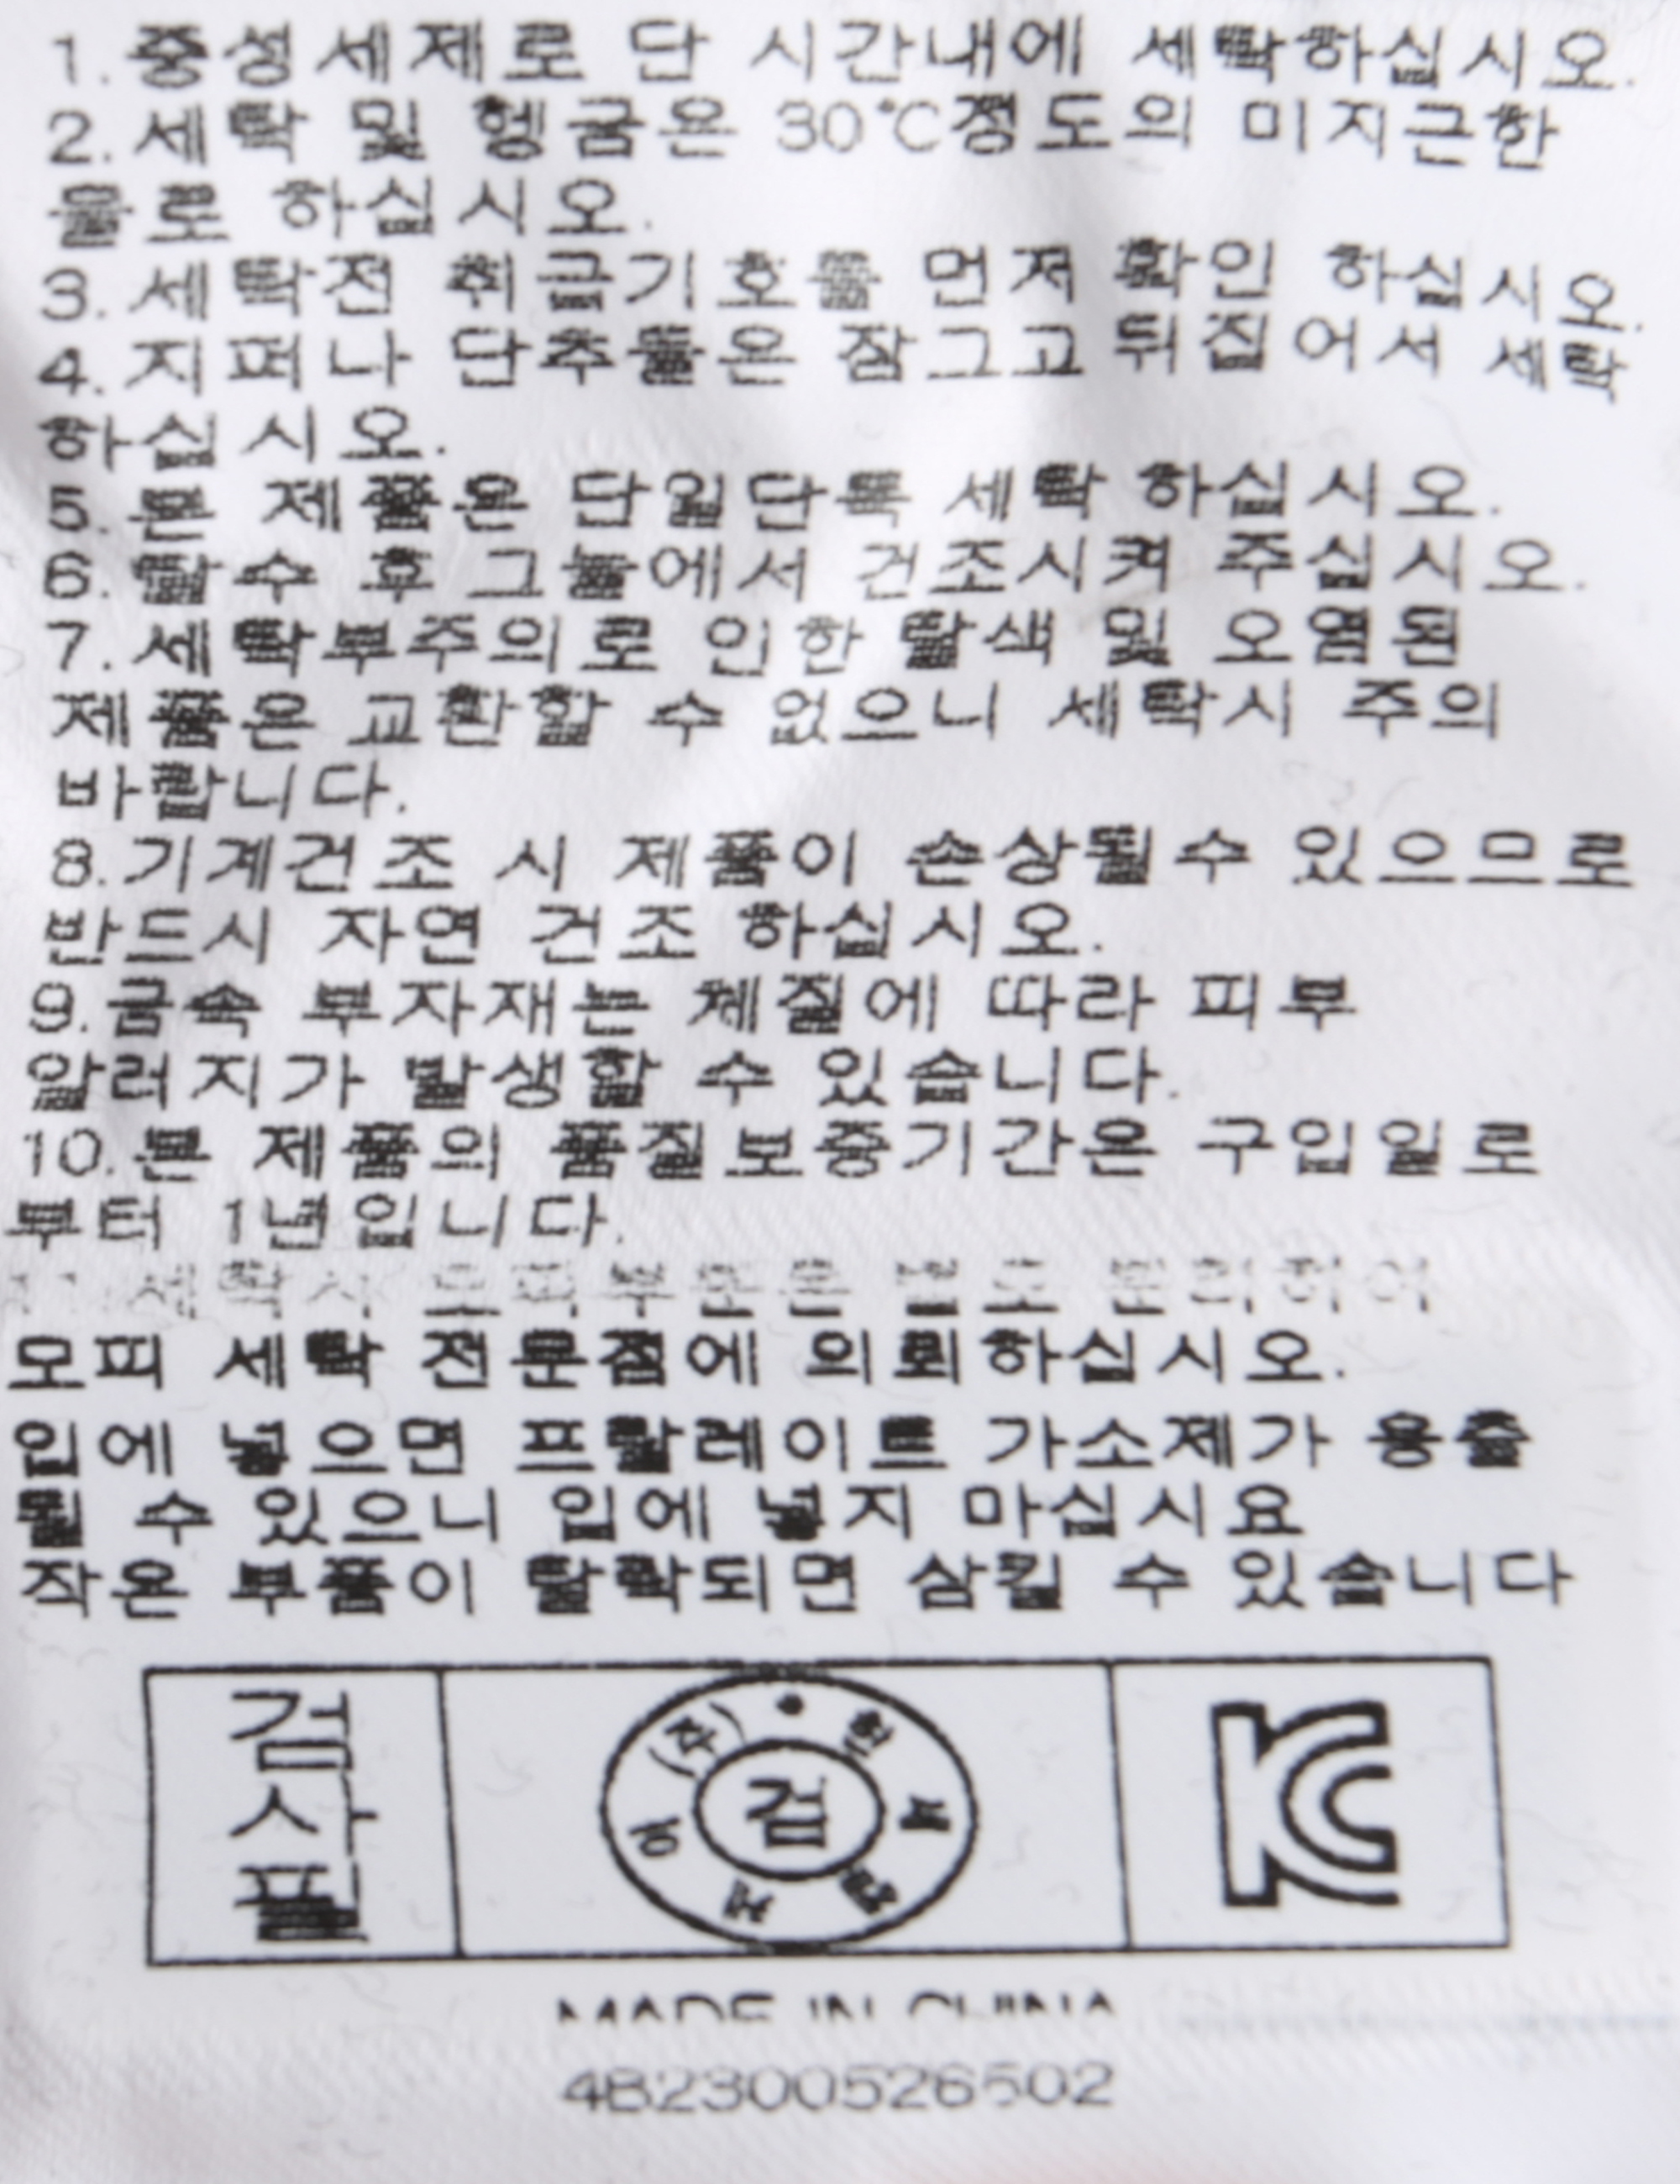 1.중성세제로 단 시간내에 세탁하십시오.
2.세탁 및 헹굼은 30℃정도의 미지근한
물로 하십시오.
3.세탁전 취급기호를 먼저 확인 하십시오.
4.지퍼나 단추들은 잠그고 뒤집어서 세탁
하십시오.
5.본 제품은 단일단독 세탁 하십시오.
6.탈수 후 그늘에서 건조시켜 주십시오.
7.세탁부주의로 인한 탈색 및 오염된
제품은 교환할 수 없으니 세탁시 주의
바랍니다.
8.기계건조 시 제품이 손상될수 있으므로
반드시 자연 건조 하십시오.
9.금속 부자재는 체질에 따라 피부
알러지가 발생할 수 있습니다.
10.본 제품의 품질보증기간은 구입일로
부터 1년입니다.
모피 세탁 전문점에 의뢰하십시오.
입에 넣으면 프탈레이트 가소제가 용출
될 수 있으니 입에 넣지 마십시요
작은 부품이 탈락되면 삼킬 수 있습니다
검
사
필
(주)
검
KC
MADE IN CHINA
4B2300526502